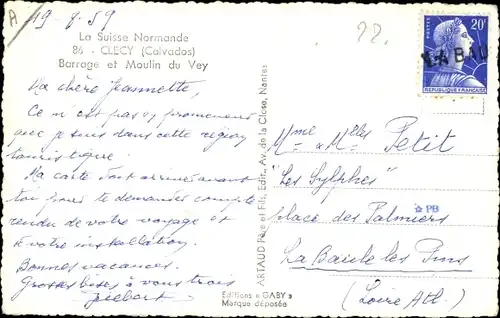 A
19-8-59
22.
La Suisse Normande
86 - CLECY (Calvados)
Barrage et Moulin du Vey
Ma chère Jeannette,
Ce n'est pas en promeneur
que je suis dans cette région
touristique.
Ma carte doit arriver avant
toi pour te demander compte
rendu de votre voyage et
votre installation.
Bonnes vacances.
Grosses bises à vous trois
ARTAUD Père et Fils, Edit., Av. de la Close, Nantes
Editions "GABY"
Marque déposée
POSTES
20F
REPUBLIQUE FRANÇAISE
LA BAU
Mme & Melles Petit
"Les Sylphes"
place des Palmiers
PB
La Baule les Pins
(Loire Atl.)